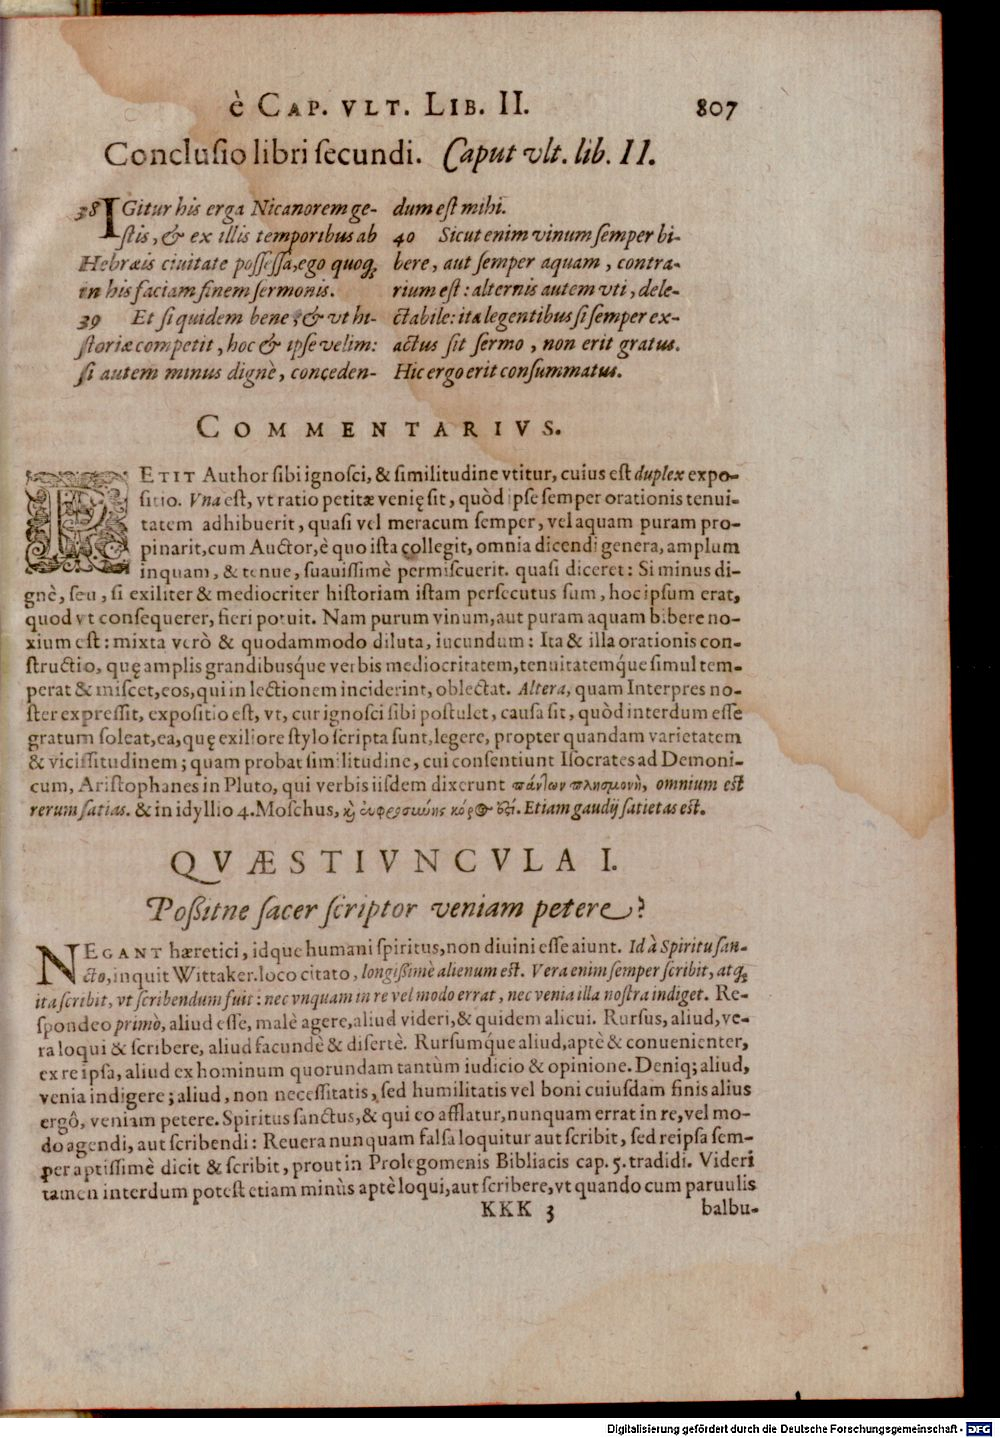 è CAP. VLT. LIB. II. 807
Conclusio libri secundi. Caput vlt. lib. II.
38 IGitur his erga Nicanorem ge-
stis, & ex illis temporibus ab
Hebræis ciuitate possessa, ego quoq;
in his faciam finem sermonis.
39 Et si quidem bene, & vt hi-
storiæ competit, hoc & ipse velim:
si autem minus dignè, conceden-
dum est mihi.
40 Sicut enim vinum semper bi-
bere, aut semper aquam, contra-
rium est: alternis autem vti, dele-
ctabile: ita legentibus si semper ex-
actus sit sermo, non erit gratus.
Hic ergo erit consummatus.
COMMENTARIVS.
PETIT Author sibi ignosci, & similitudine vtitur, cuius est duplex expo-
sitio. Vna est, vt ratio petitæ venię sit, quòd ipse semper orationis tenui-
tatem adhibuerit, quasi vel meracum semper, vel aquam puram pro-
pinarit, cum Auctor, è quo ista collegit, omnia dicendi genera, amplum
inquam, & tenue, suauissimè permiscuerit. quasi diceret: Si minus di-
gnè, seu, si exiliter & mediocriter historiam istam persecutus sum, hoc ipsum erat,
quod vt consequerer, fieri potuit. Nam purum vinum, aut puram aquam bibere no-
xium est: mixta verò & quodammodo diluta, iucundum: Ita & illa orationis con-
structio, quę amplis grandibusque verbis mediocritatem, tenuitatemq́ue simul tem-
perat & miscet, eos, qui in lectionem inciderint, oblectat. Altera, quam Interpres no-
ster expressit, expositio est, vt, cur ignosci sibi postulet, causa sit, quòd interdum esse
gratum soleat, ea, quę exiliore stylo scripta sunt, legere, propter quandam varietatem
& vicissitudinem; quam probat similitudine, cui consentiunt Isocrates ad Demoni-
cum, Aristophanes in Pluto, qui verbis iisdem dixerunt πάντων πλησμονὴ, omnium est
rerum satias. & in idyllio 4. Moschus, καὶ ευφροσύνης κόρος ἐστί. Etiam gaudij satietas est.
QVÆSTIVNCVLA I.
Possitne sacer scriptor veniam petere?
NEGANT hæretici, idque humani spiritus, non diuini esse aiunt. Id à Spiritu san-
cto, inquit Wittaker. loco citato, longissimè alienum est. Vera enim semper scribit, atq;
ita scribit, vt scribendum fuit: nec vnquam in re vel modo errat, nec venia illa nostra indiget. Re-
spondeo primò, aliud esse, malè agere, aliud videri, & quidem alicui. Rursus, aliud, ve-
ra loqui & scribere, aliud facundè & disertè. Rursumq́ue aliud, aptè & conuenienter,
ex re ipsa, aliud ex hominum quorundam tantùm iudicio & opinione. Deniq; aliud,
venia indigere; aliud, non necessitatis, sed humilitatis vel boni cuiusdam finis alius
ergô, veniam petere. Spiritus sanctus, & qui eo afflatur, nunquam errat in re, vel mo-
do agendi, aut scribendi: Reuera nunquam falsa loquitur aut scribit, sed reipsa sem-
per aptissimè dicit & scribit, prout in Prolegomenis Bibliacis cap. 5. tradidi. Videri
tamen interdum potest etiam minùs aptè loqui, aut scribere, vt quando cum paruulis
KKK 3 balbu-
Digitalisierung gefördert durch die Deutsche Forschungsgemeinschaft - DFG